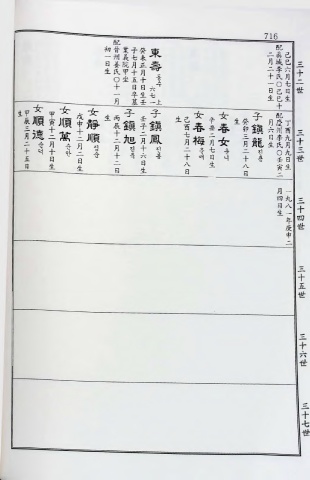 716
三十二世
己巳六月七日生
城李氏○己巳十
二月二十一日生
東壽 동수 六七一上
癸未正月十日生壬
子七月十五日卒墓
義院甲坐
配晉州姜氏○十一月
初一日生
三十三世
丁酉九月九日生
配慶州李氏○壬寅二
月六日生
子鎭龍 진용
癸卯三月二十八日
生
女春女 춘녀
辛亥二月七日生
女春梅 춘매
己酉七月二十八日
生
子鎭鳳 진봉
壬子二月十六日生
子鎭旭 진욱
丙辰十二月十二日
生
女靜順 정순
戊申十二月二日生
女順萬 순만
甲寅十二月十日生
女順德 순덕
甲辰三月二十五日
生
三十四世
一九八一年庚申二
月四日生
三十五世
三十六世
三十七世